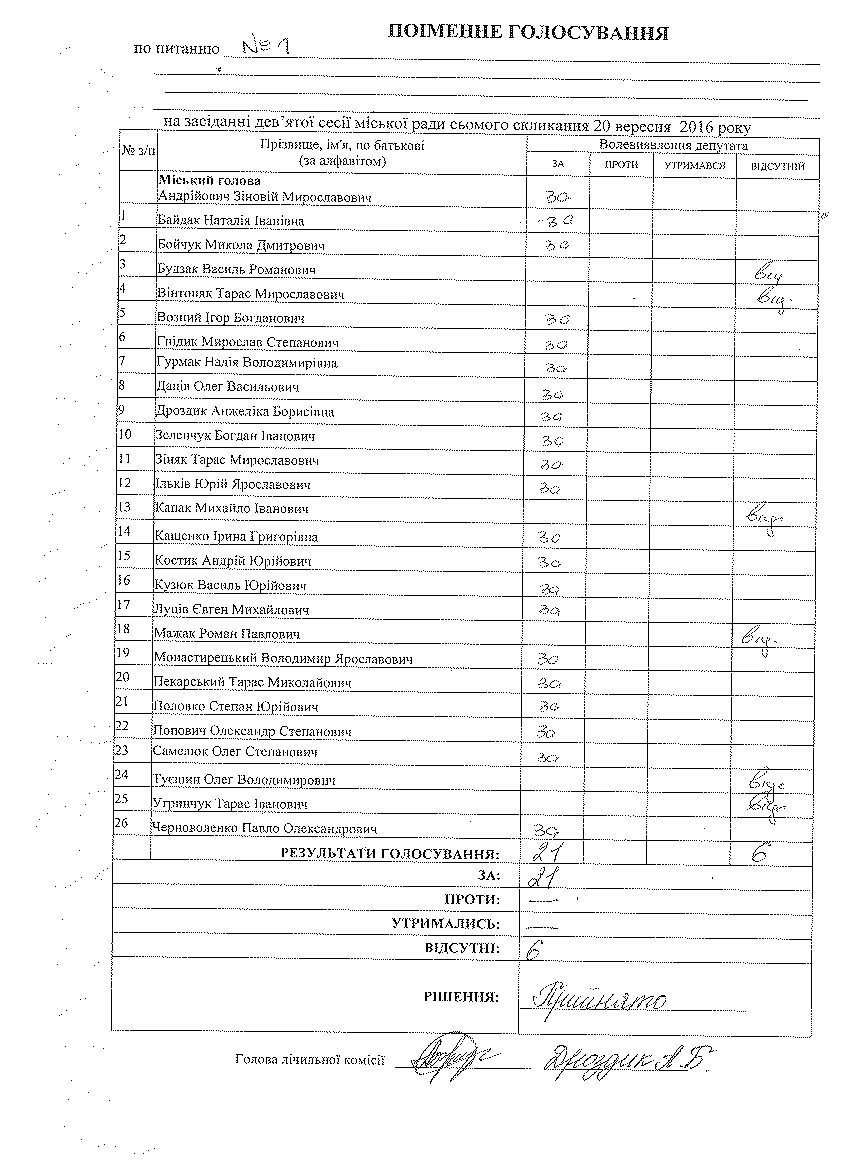 ПОІМЕННЕ ГОЛОСУВАННЯ
по питанню № 1
на засіданні дев’ятої сесії міської ради сьомого скликання 20 вересня 2016 року
№ з/п Прізвище, ім'я, по батькові (за алфавітом) Волевиявлення депутата
ЗА ПРОТИ УТРИМАВСЯ ВІДСУТНІЙ
Міський голова
Андрійович Зіновій Мирославович за
1 Байдак Наталія Іванівна за
2 Бойчук Микола Дмитрович за
3 Будзак Василь Романович від
4 Вінтоняк Тарас Мирославович від.
5 Возний Ігор Богданович за
6 Гнідик Мирослав Степанович за
7 Гурмак Надія Володимирівна за
8 Даців Олег Васильович за
9 Дроздик Анжеліка Борисівна за
10 Зеленчук Богдан Іванович за
11 Зіняк Тарас Мирославович за
12 Ільків Юрій Ярославович за
13 Капак Михайло Іванович від.
14 Кащенко Ірина Григорівна за
15 Костик Андрій Юрійович за
16 Кузюк Василь Юрійович за
17 Луців Євген Михайлович за
18 Мажак Роман Павлович від.
19 Монастирецький Володимир Ярославович за
20 Пекарський Тарас Миколайович за
21 Половко Степан Юрійович за
22 Попович Олександр Степанович за
23 Самелюк Олег Степанович за
24 Олег Володимирович від.
25 Угринчук Тарас Іванович від.
26 Черноволенко Павло Олександрович за
РЕЗУЛЬТАТИ ГОЛОСУВАННЯ: 21 6
ЗА: 21
ПРОТИ: —
УТРИМАЛИСЬ: —
ВІДСУТНІ: 6
РІШЕННЯ: Прийнято
Голова лічильної комісії Дроздик А.Б.